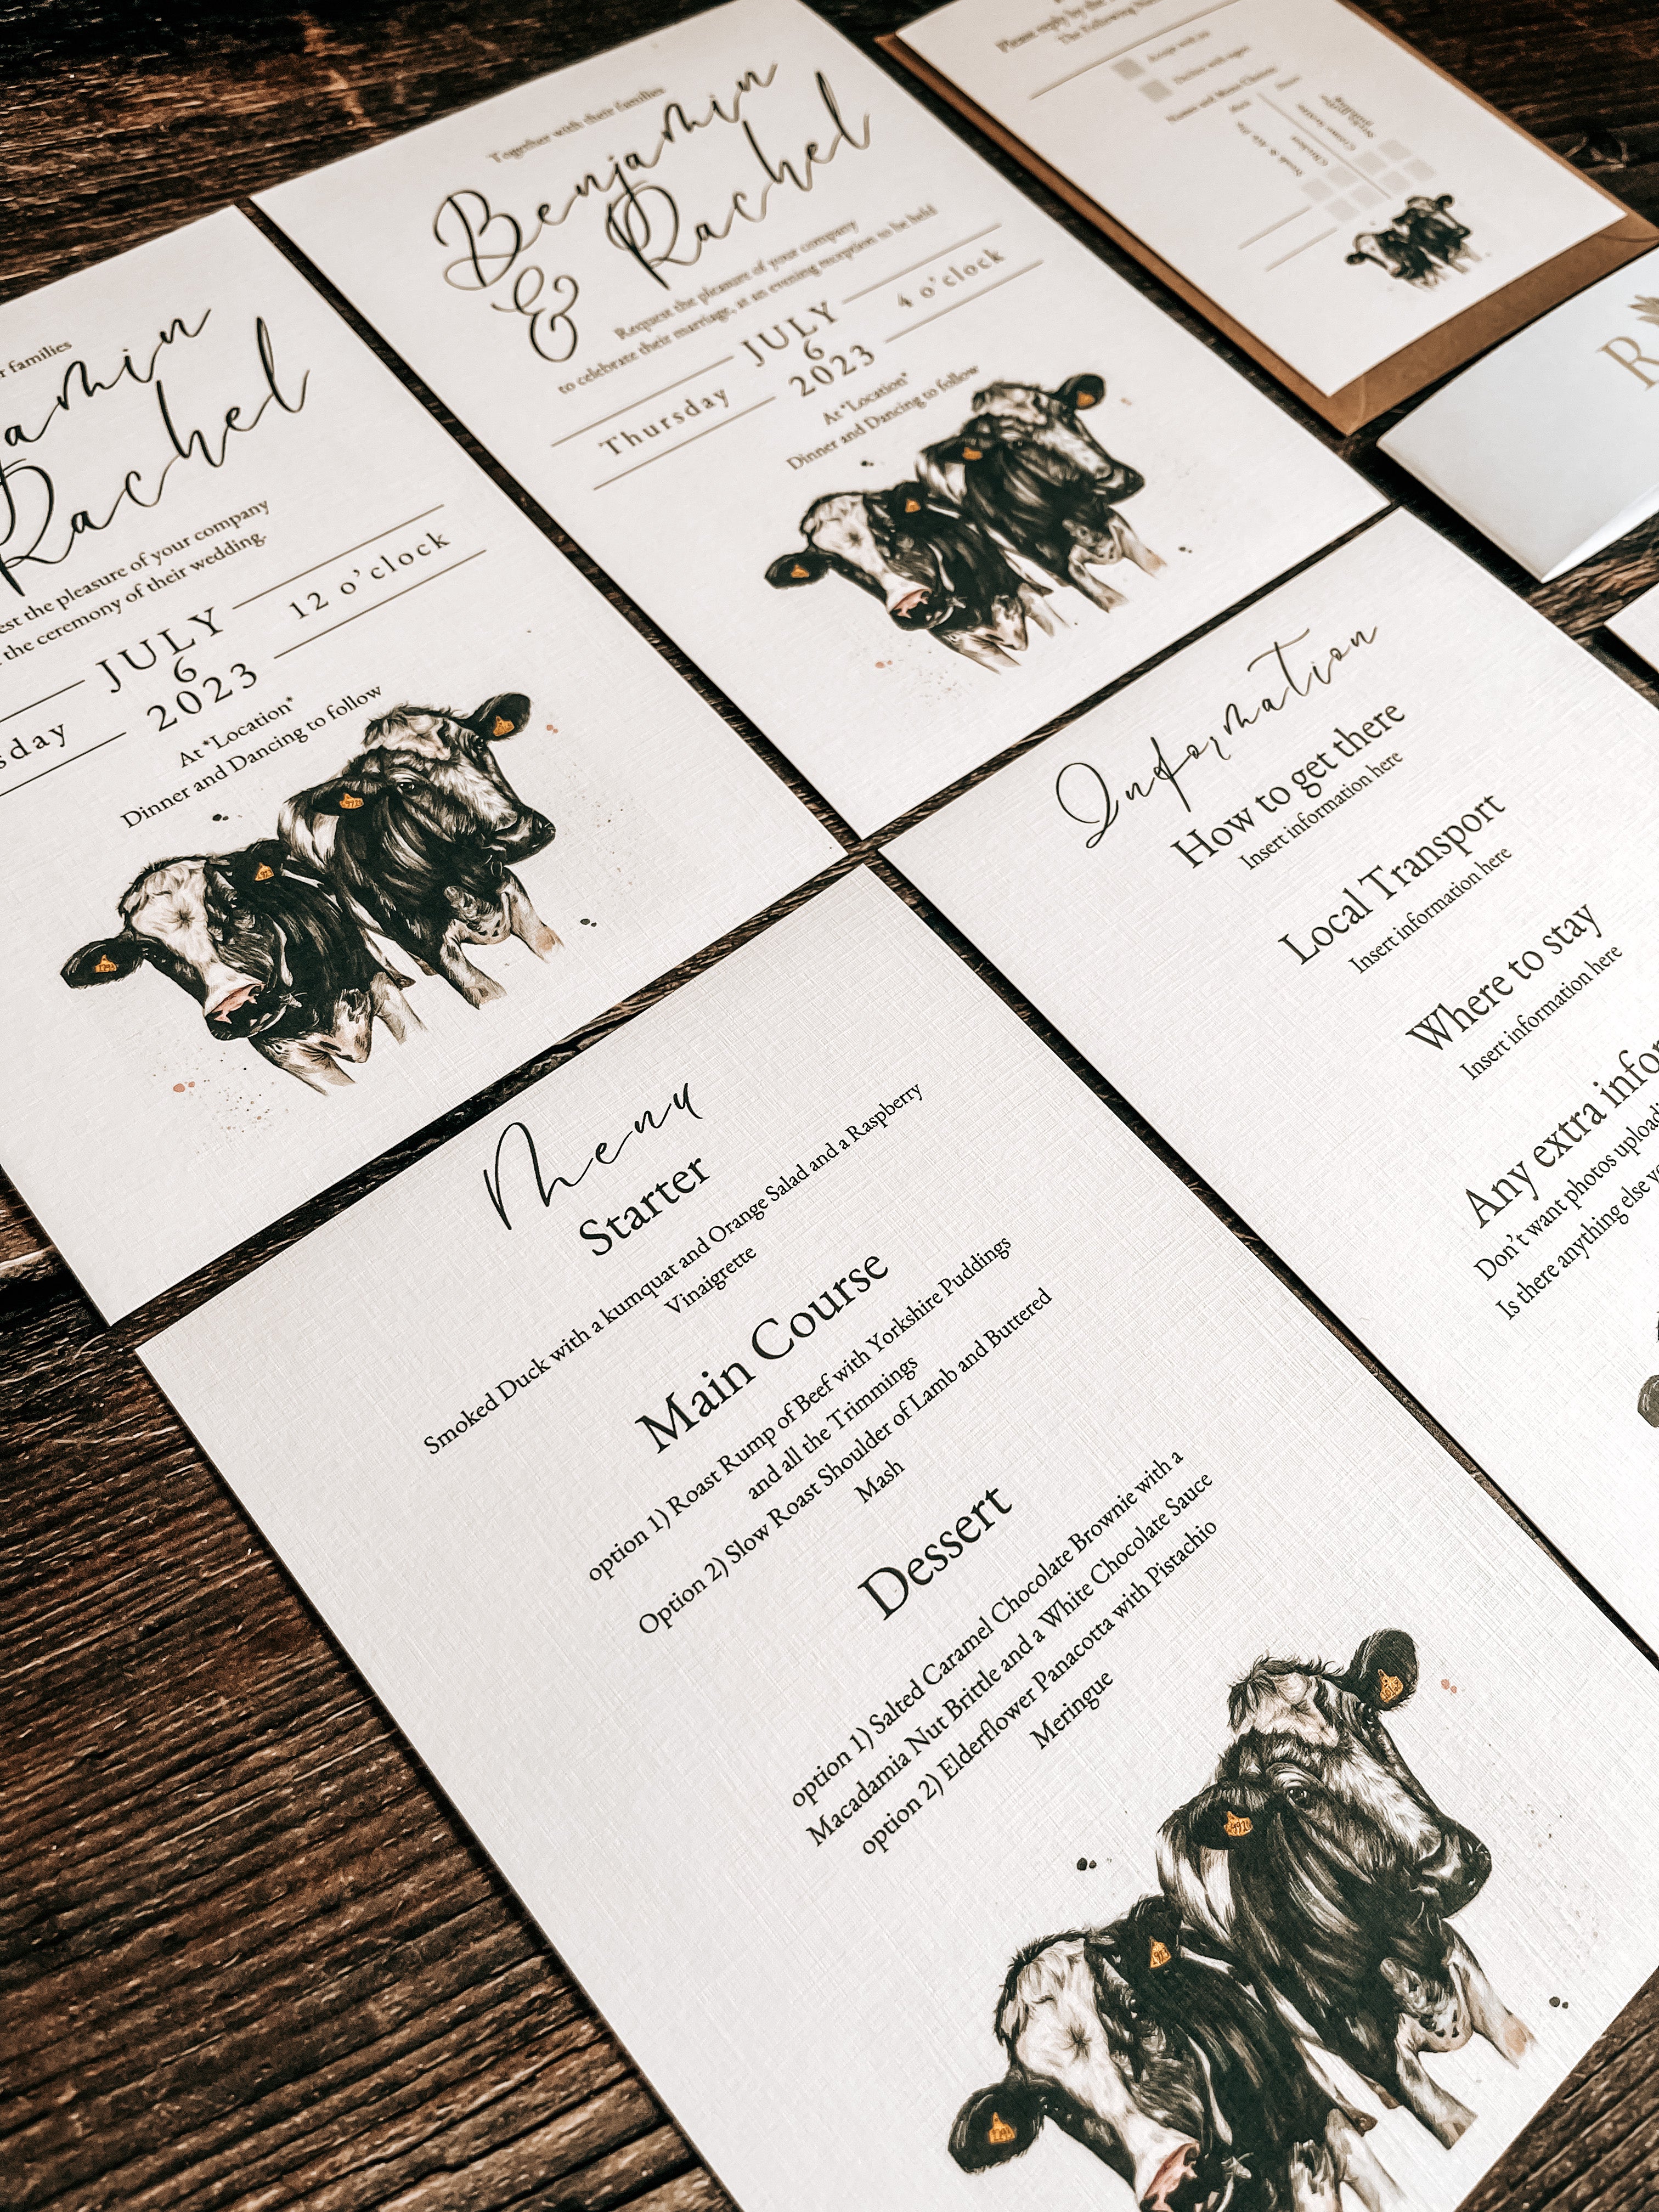 families
amin
Rachel
the pleasure of your company
the ceremony of their wedding.
JULY
6
2023
12 o'clock
At *Location*
Dinner and Dancing to follow
Together with their families
Benjamin
& Rachel
Request the pleasure of your company
to celebrate their marriage, at an evening reception to be held
JULY
Thursday 6 4 o'clock
2023
At *Location*
Dinner and Dancing to follow
Please reply by the
The Following
Names and Menu Choices
R
Information
How to get there
Insert information here
Local Transport
Insert information here
Where to stay
Insert information here
Any extra infor
Don't want photos uploadi
Is there anything else yo
Menu
Starter
Smoked Duck with a kumquat and Orange Salad and a Raspberry
Vinaigrette
Main Course
option 1) Roast Rump of Beef with Yorkshire Puddings
and all the Trimmings
Option 2) Slow Roast Shoulder of Lamb and Buttered
Mash
Dessert
option 1) Salted Caramel Chocolate Brownie with a
Macadamia Nut Brittle and a White Chocolate Sauce
option 2) Elderflower Panacotta with Pistachio
Meringue